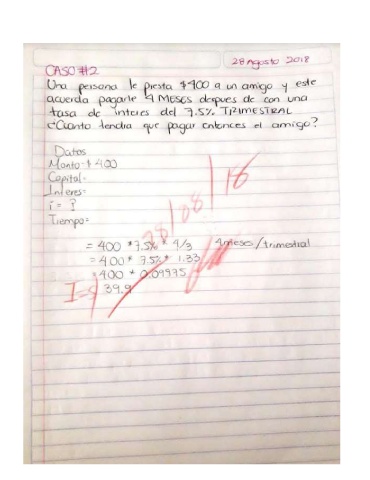 28 Agosto 2018
CASO #2
Una persona le presta $400 a un amigo y este
acuerda pagarle 4 MESES despues de con una
tasa de interes del 7.5% TRIMESTRAL
¿Cuanto tendra que pagar entonces el amigo?
Datos
Monto=$400
Capital=
Interes=
i= ?
Tiempo=
28/08/18
= 400 * 7.5% * 4/3 4meses/trimestral
= 400 * 7.5% * 1.33
400 * 0.09975
I=$ 39.9